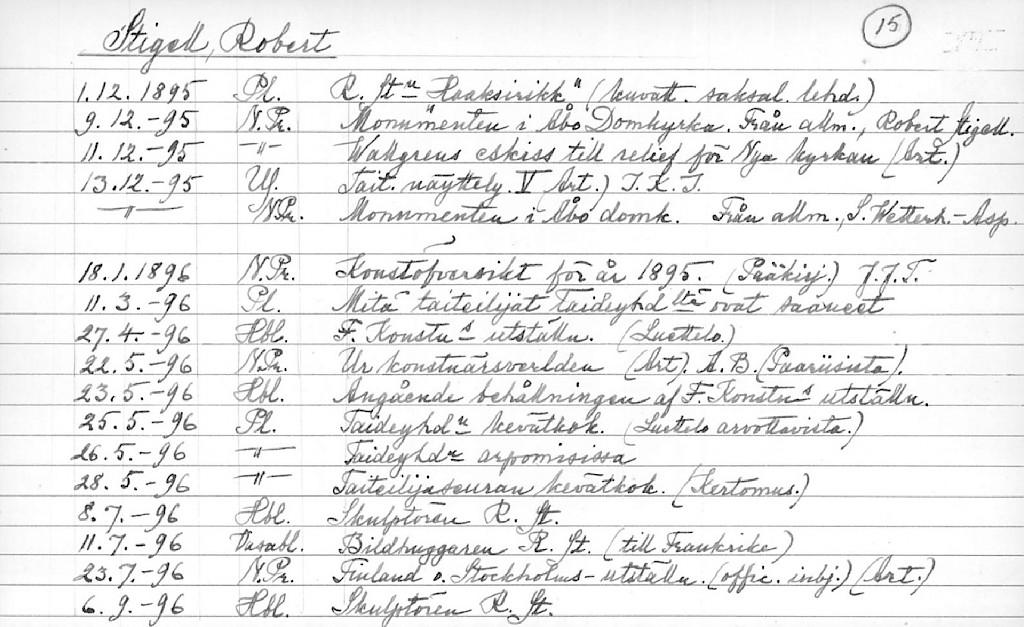 15
Stigell, Robert
1.12.1895 Pl. R. St:n "Haaksirikk" (kuvatt. saksal. lehd.)
9.12.-95 N.Pr. "Monumenten i Åbo Domkyrka. Från allm., Robert Stigell.
11.12.-95 -"- Wallgrens eskiss till relief för Nya kyrkan (Art.)
13.12.-95 Uf. Tait. näyttely. V (Art.) J.K.I.
-"- N.Pr. Monumenten i Åbo domk. Från allm., S. Wetterh.-Asp.
18.1.1896 N.Pr. Konstöfversikt för år 1895. (Pääkirj.) J.J.T.
11.3.-96 Pl. Mitä taiteilijat Taideyhd:ltä ovat saaneet
27.4.-96 Hbl. F. Konstn:s utställn. (Luettelo.)
22.5.-96 N.Pr. Ur konstnärsverlden (Art). A.B. (Paariisista).
23.5.-96 Hbl. Angående behållningen af F. Konstn:s utställn.
25.5.-96 Pl. Taideyhd:n kevätkok. (Luettelo arvottavista.)
26.5.-96 -"- Taideyhd:n arpomisissa
28.5.-96 -"- Taiteilijaseuran kevätkok. (Kertomus.)
8.7.-96 Hbl. Skulptören R. St.
11.7.-96 Vasabl. Bildhuggaren R. St. (till Frankrike)
23.7.-96 N.Pr. Finland o. Stockholms-utställn. (offic. inbj.) (Art.)
6.9.-96 Hbl. Skulptören R. St.